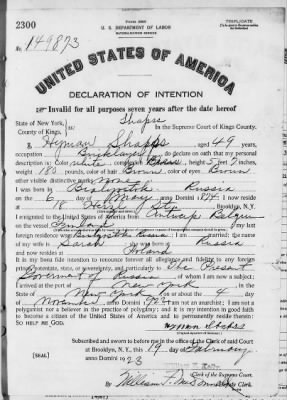 2300
U. S. DEPARTMENT OF LABOR
NATURALIZATION SERVICE
TRIPLICATE
No. 149873
UNITED STATES OF AMERICA
DECLARATION OF INTENTION
Invalid for all purposes seven years after the date hereof
Shapss
State of New York,
County of Kings, ss: In the Supreme Court of Kings County.
I, Hyman Shapss aged 49 years,
occupation Bricklayer, do declare on oath that my personal
description is: Color white, complexion, height 5 feet 7 inches,
weight 180 pounds, color of hair Brown, color of eyes Brown
other visible distinctive marks none
I was born in Bialystok Russia
on the 6 day of May, anno Domini; I now reside
at 18, Brooklyn, N.Y.
I emigrated to the United States of America from Antwerp Belgium
on the vessel; my last
foreign residence was Russia; I am married; the name
of my wife is Sarah; she was born at Russia
and now resides at
It is my bona fide intention to renounce forever all allegiance and fidelity to any foreign
prince, potentate, state, or sovereignty, and particularly to The Present
Government of Russia of whom I am now a subject;
I arrived at the port of New York, in the
State of New York, on or about the day
of November, anno Domini; I am not an anarchist; I am not a
polygamist nor a believer in the practice of polygamy; and it is my intention in good faith
to become a citizen of the United States of America and to permanently reside therein:
SO HELP ME GOD.
Hyman Shapss
(Original signature of declarant.)
Subscribed and sworn to before me in the office of the Clerk of said Court
at Brooklyn, N.Y., this 19 day of February
anno Domini 1923
[SEAL]
Clerk of the Supreme Court.
By William F. Clerk.